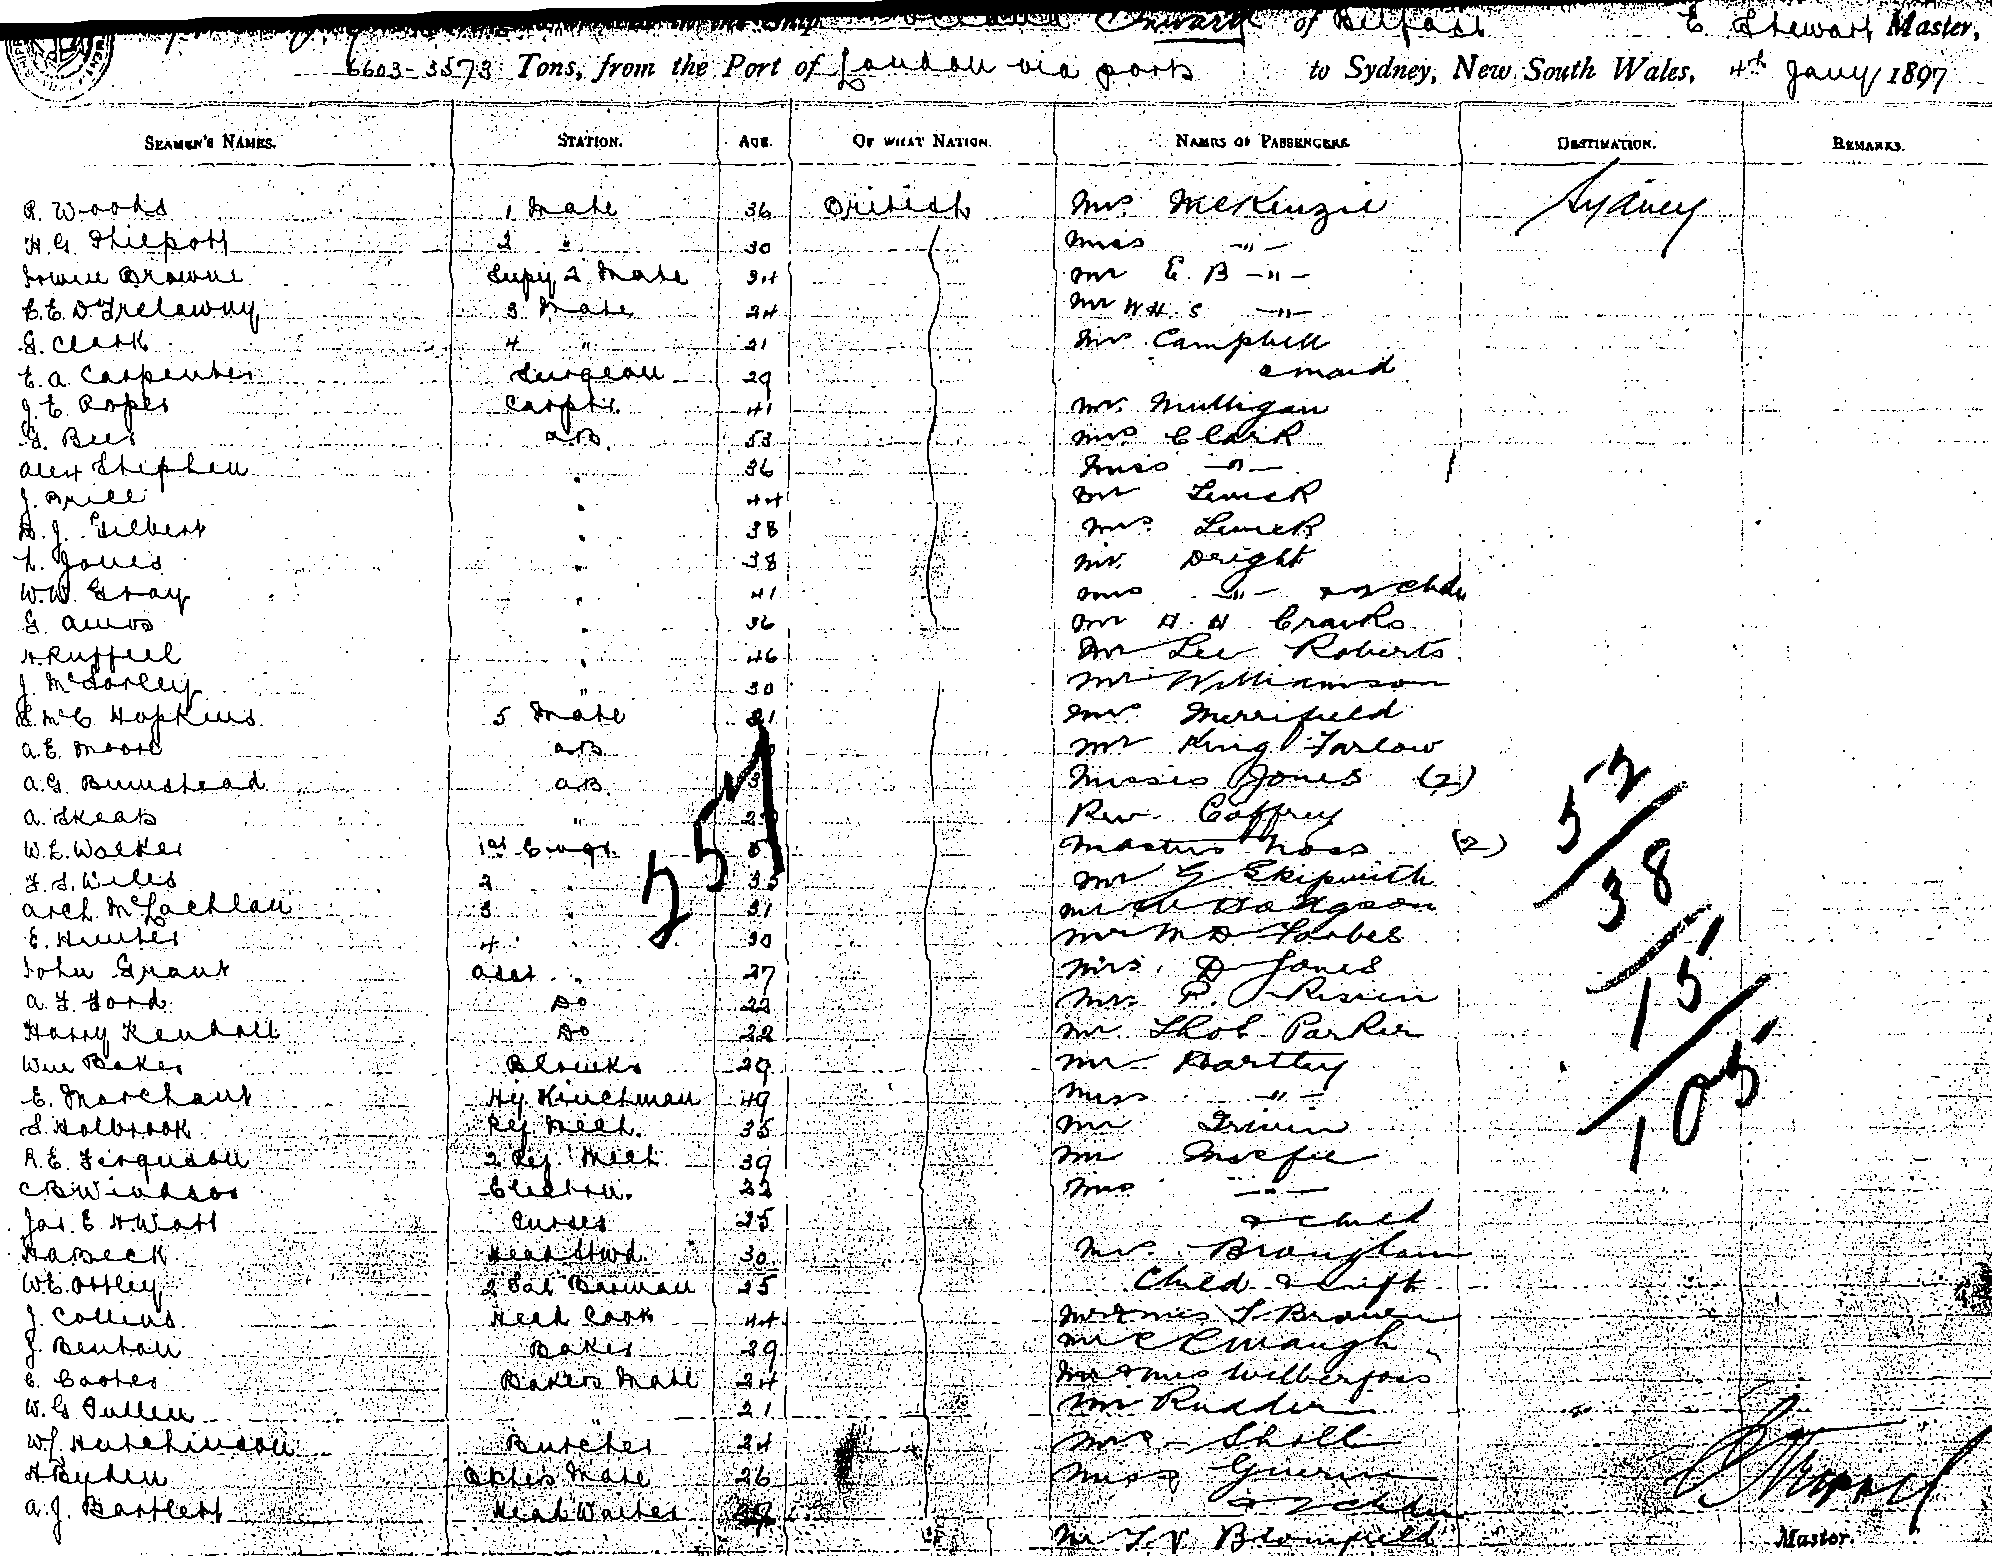 of Belfast E Stewart Master,
6603-3573 Tons, from the Port of London via ports to Sydney, New South Wales, 4th Jany 1897
SEAMEN'S NAMES. STATION. AGE. OF WHAT NATION. NAMES OF PASSENGERS DESTINATION. REMARKS.
R. Woods 1 Mate 36 British Mrs McKenzie Sydney
H. G. Philpott 2 " 30 Miss -"-
Browne Supy 2 Mate 34 Mr E. B -"-
C.E. D Trelawny 3 Mate 24 Mr W H. S -"-
G. Clark 4 " 21 Mrs Campbell
E. A Carpenter Surgeon 29 & maid
J. E. Roper Carptr. 41 Mr. Mulligan
G. Bees A.B. 53 Mrs Clark
Alex Stephen " 36 Miss -"-
J. Brill " 44 Mr
J. Gilbert " 38 Mrs
Jones " 38 Mr. Dright
W.W. Gray " 41 Mrs -"- & 2 chdn
G. Amos " 36 Mr H. H
" 46 Mr Lee Roberts
J. McSorley " 30 Mr Williamson
McC Hopkins 5 Mate 21 Mrs Merrifield
A. E. Moore A.B Mr King Farlow
A.G. Bumstead A.B. Misses Jones (2)
A. Skeats " Rev. Caffrey
W. E. Walker 1st Engr. Masters Noss (2)
F. S. Wiles 2 " 35 Mr G Skipwith
Arch McLachlan 3 " 31 Mr Hodgson
E. Hunter 4 " 30 Mr M D Forbes
John Grant Asst " 27 Mrs. D Jones
A. F. Ford Do 22 Mrs P. Risien
Harry Kendall Do 22 Mr. Thos Parker
Wm Baker 29 Mr Hartley
E. Marchant 49 Miss -"-
S. Holbrook Ref. Mech. 35 Mr Irwin
R. E. Ferguson 2 Ref. Mech 39 Mr Macfie
C B Windsor Electrn. 22 Mrs -"-
Jas. E H Watt Purser 25 & child
H A Beck Head Stwd. 30 Mrs. Brougham
W. E. Ottley 2 Sal Barman 25 Child &
J. Collins Head Cook 44 Mr & Mrs T Brown
J. Benton Baker 29 Mr C
E. Coates Bakers Mate 24 Mr & Mrs Wilberfoss
W. G Pullen " 21 Mr Rudder
W. J. Hutchinson Butcher 24 Mrs Sholl
H Byden Mate 26 Miss Guerin
A. J. Bartlett Head Waiter & 2 chdn
Mr T. V Blomfield
257
52
38
15
105
Master.